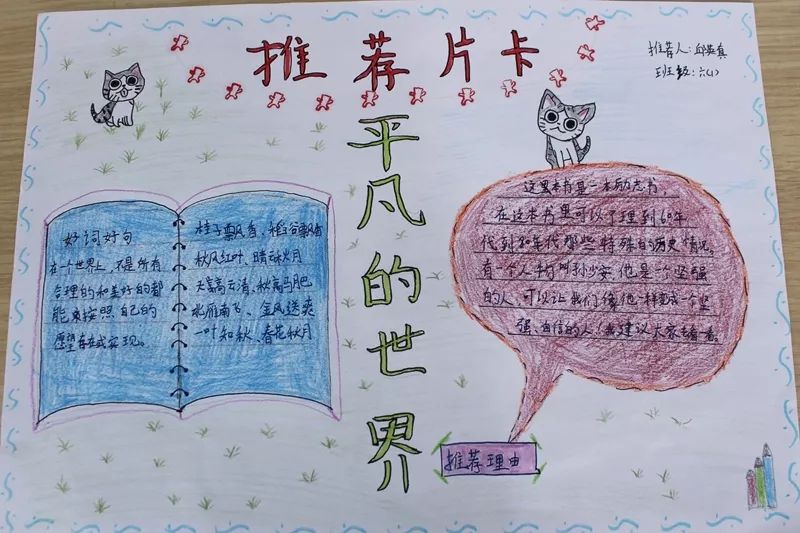 推荐片卡
推荐人:邱英真
班级:六(1)
平凡的世界
好词好句
在一个世界上,不是所有
合理的和美好的都
能来按照自己的
愿望存在或实现。
桂子飘香、稻谷飘香
秋风红叶、晴秋月
天高云清、秋高马肥
北雁南飞、金风送爽
一叶知秋、春花秋月
这里本书是一本励志书,
在这本书里可以了理到60年
代到80年代那些特殊的历史情况。
有一个人物叫孙少安他是一个坚强
的人,可以让我们像他一样变成一个坚
强、自信的人!我建议大家去看一看。
推荐理由